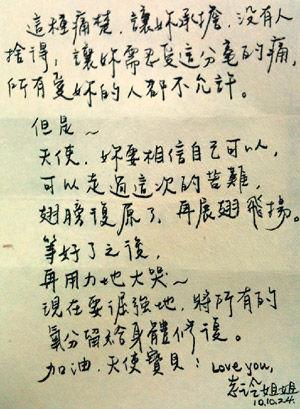 這種痛楚,讓妳承擔,没有人
捨得,讓妳需忍受這分毫的痛,
所有愛妳的人都不允許。
但是~
天使,妳要相信自己可以,
可以走過這次的苦難,
翅膀復原了,再展翅飛揚。
等好了之後,
再用力地大哭~
現在要倔強地,將所有的
氧分留給身體修復。
加油,天使寶貝! Love you,
志玲姐姐
10.10.24.